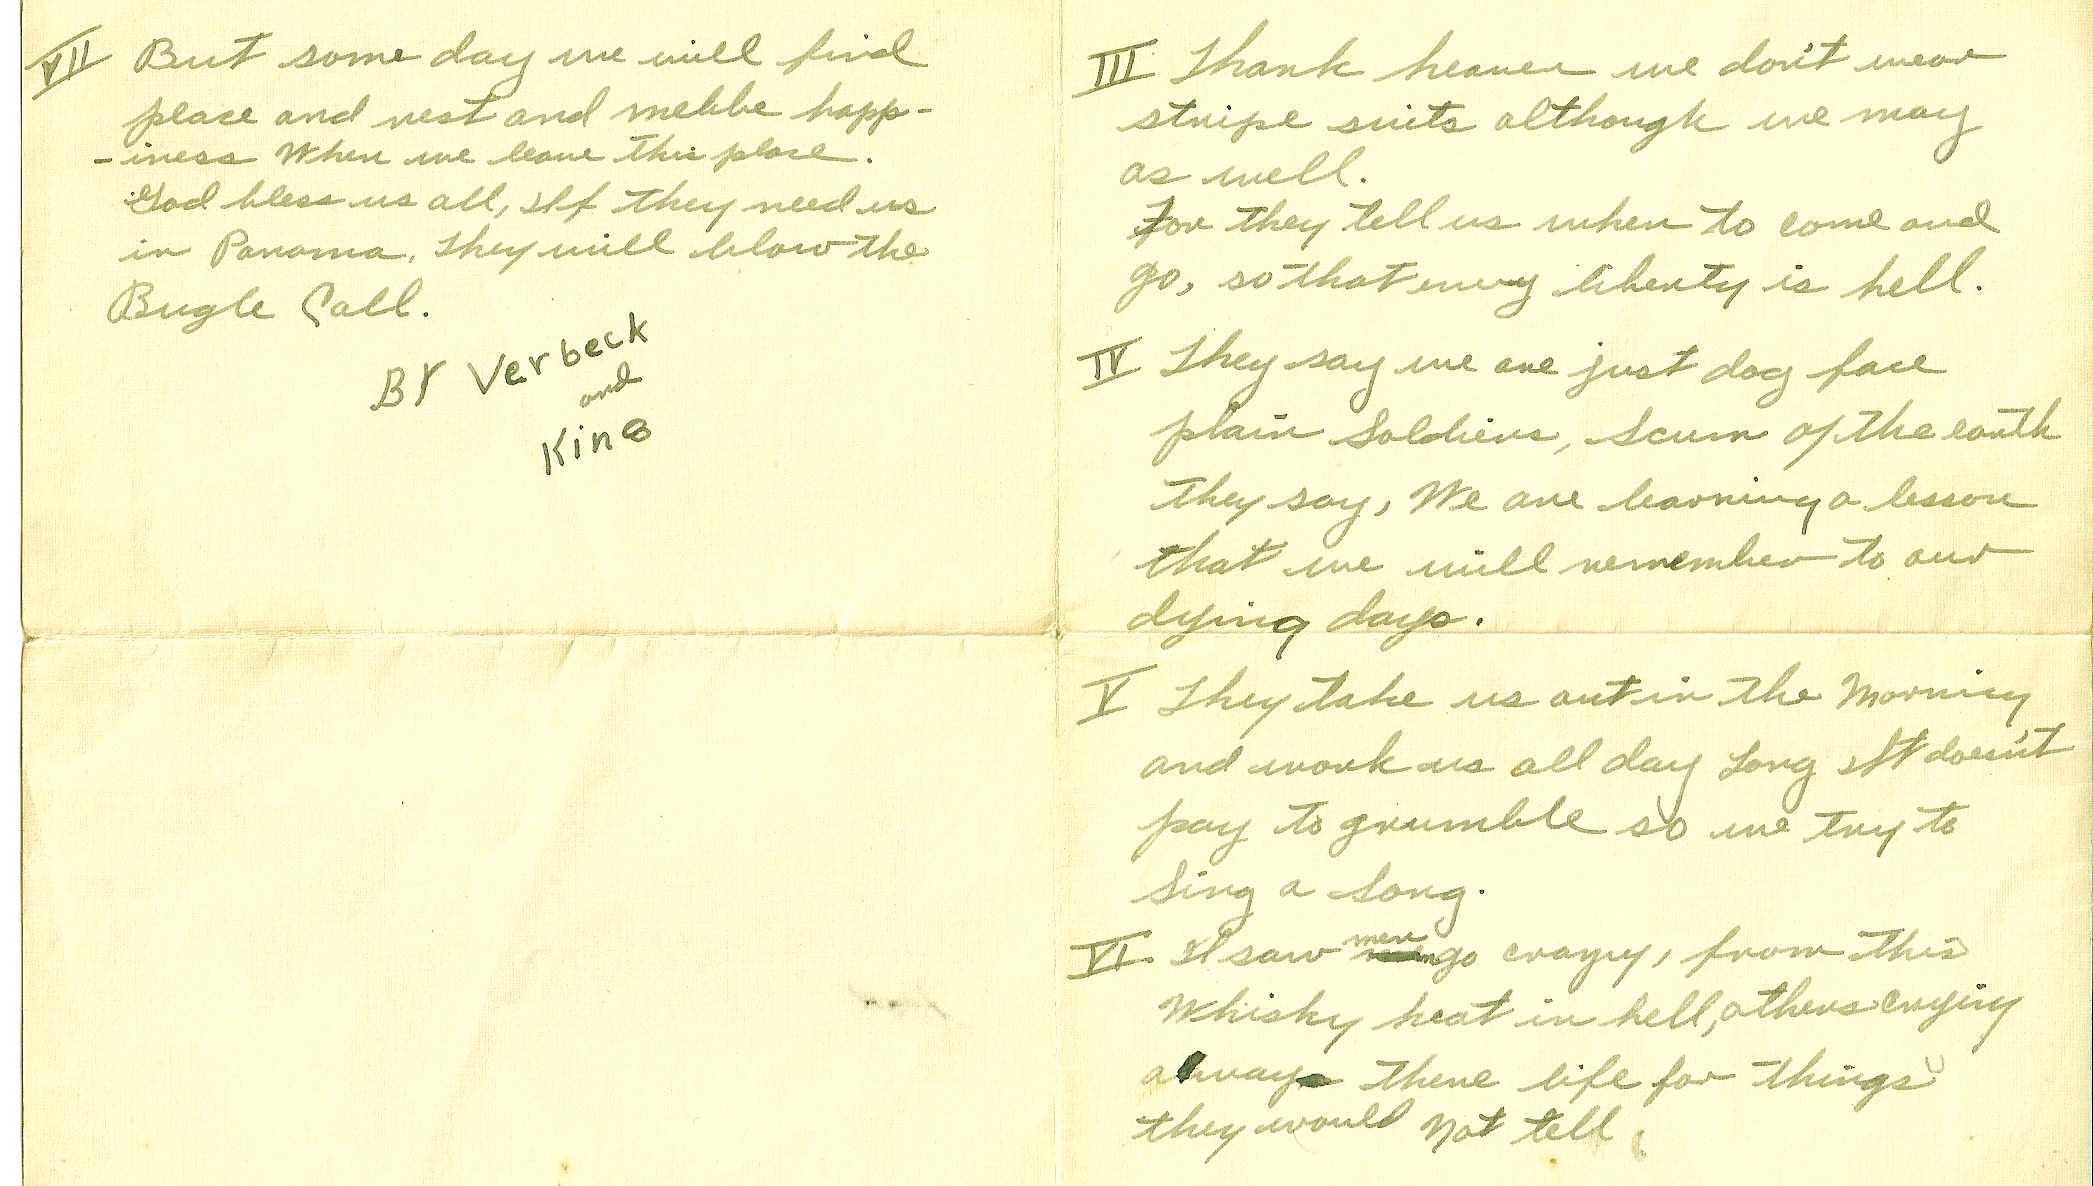 VII But some day we will find
peace and rest and mebbe happ-
-iness When we leave this place.
God bless us all, If they need us
in Panama, they will blow the
Bugle Call.
BY Verbeck
and
King
III Thank heaven we don't wear
stripe suits although we may
as well.
For they tell us when to come and
go, so that liberty is hell.
IV They say we are just dog face
plain Soldiers, Scum of the earth
they say, We are learning a lesson
that we will remember to our
dying days.
V They take us out in the Morning
and work us all day Long It doesn't
pay to grumble so we try to
Sing a Song.
VI. I saw men go crazy, from this
Whisky heat in hell, others crying
away there life for things
they would Not tell.